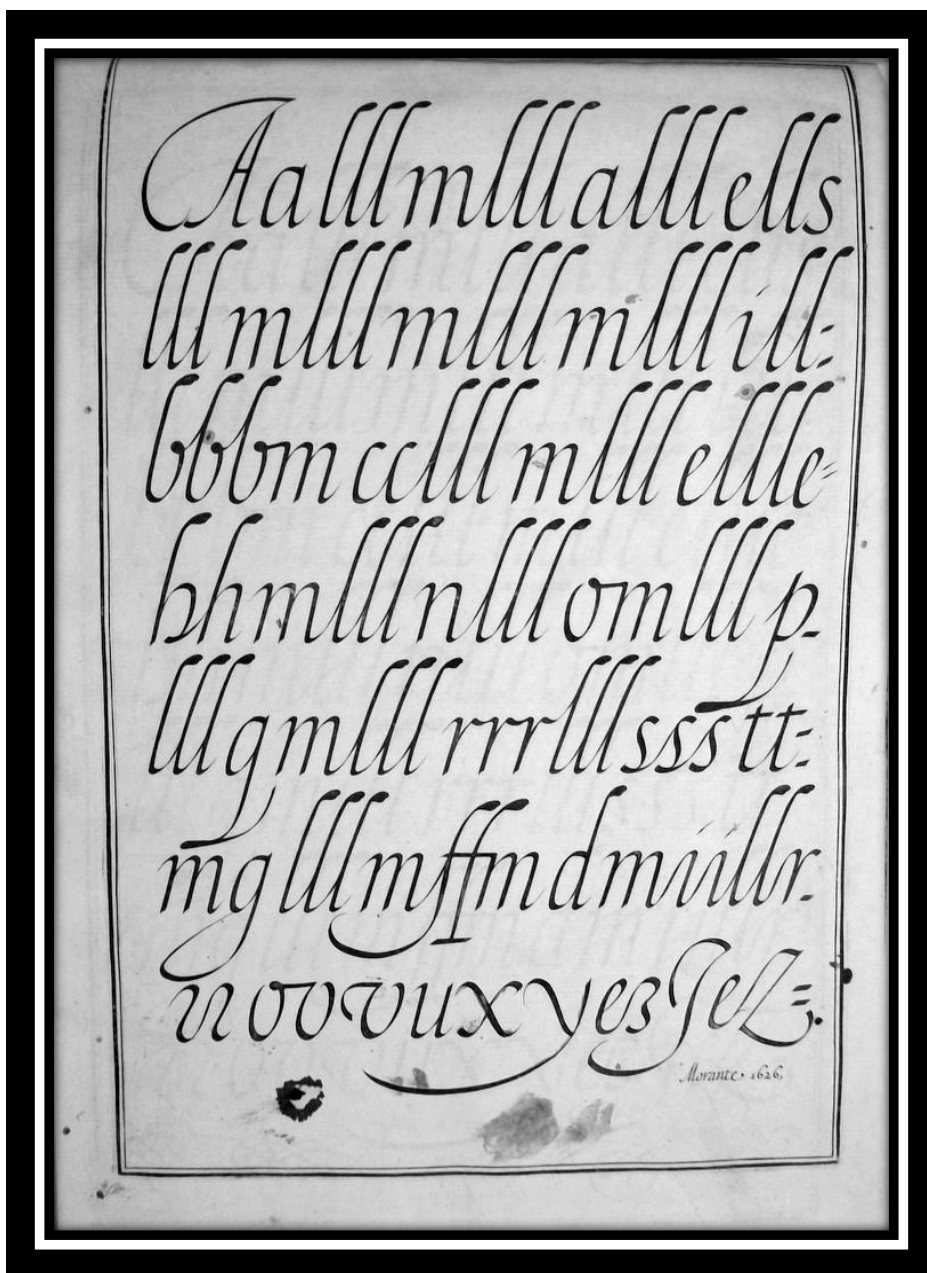 Aalllmlllalllells
lllmlllmlllmlllill=
bbbmcclllmlllellle=
hhmlllnlllomlllp-
lllqmlllrrrlllssstt=
mglllmffmdmiüllr.
Morante, 1626,